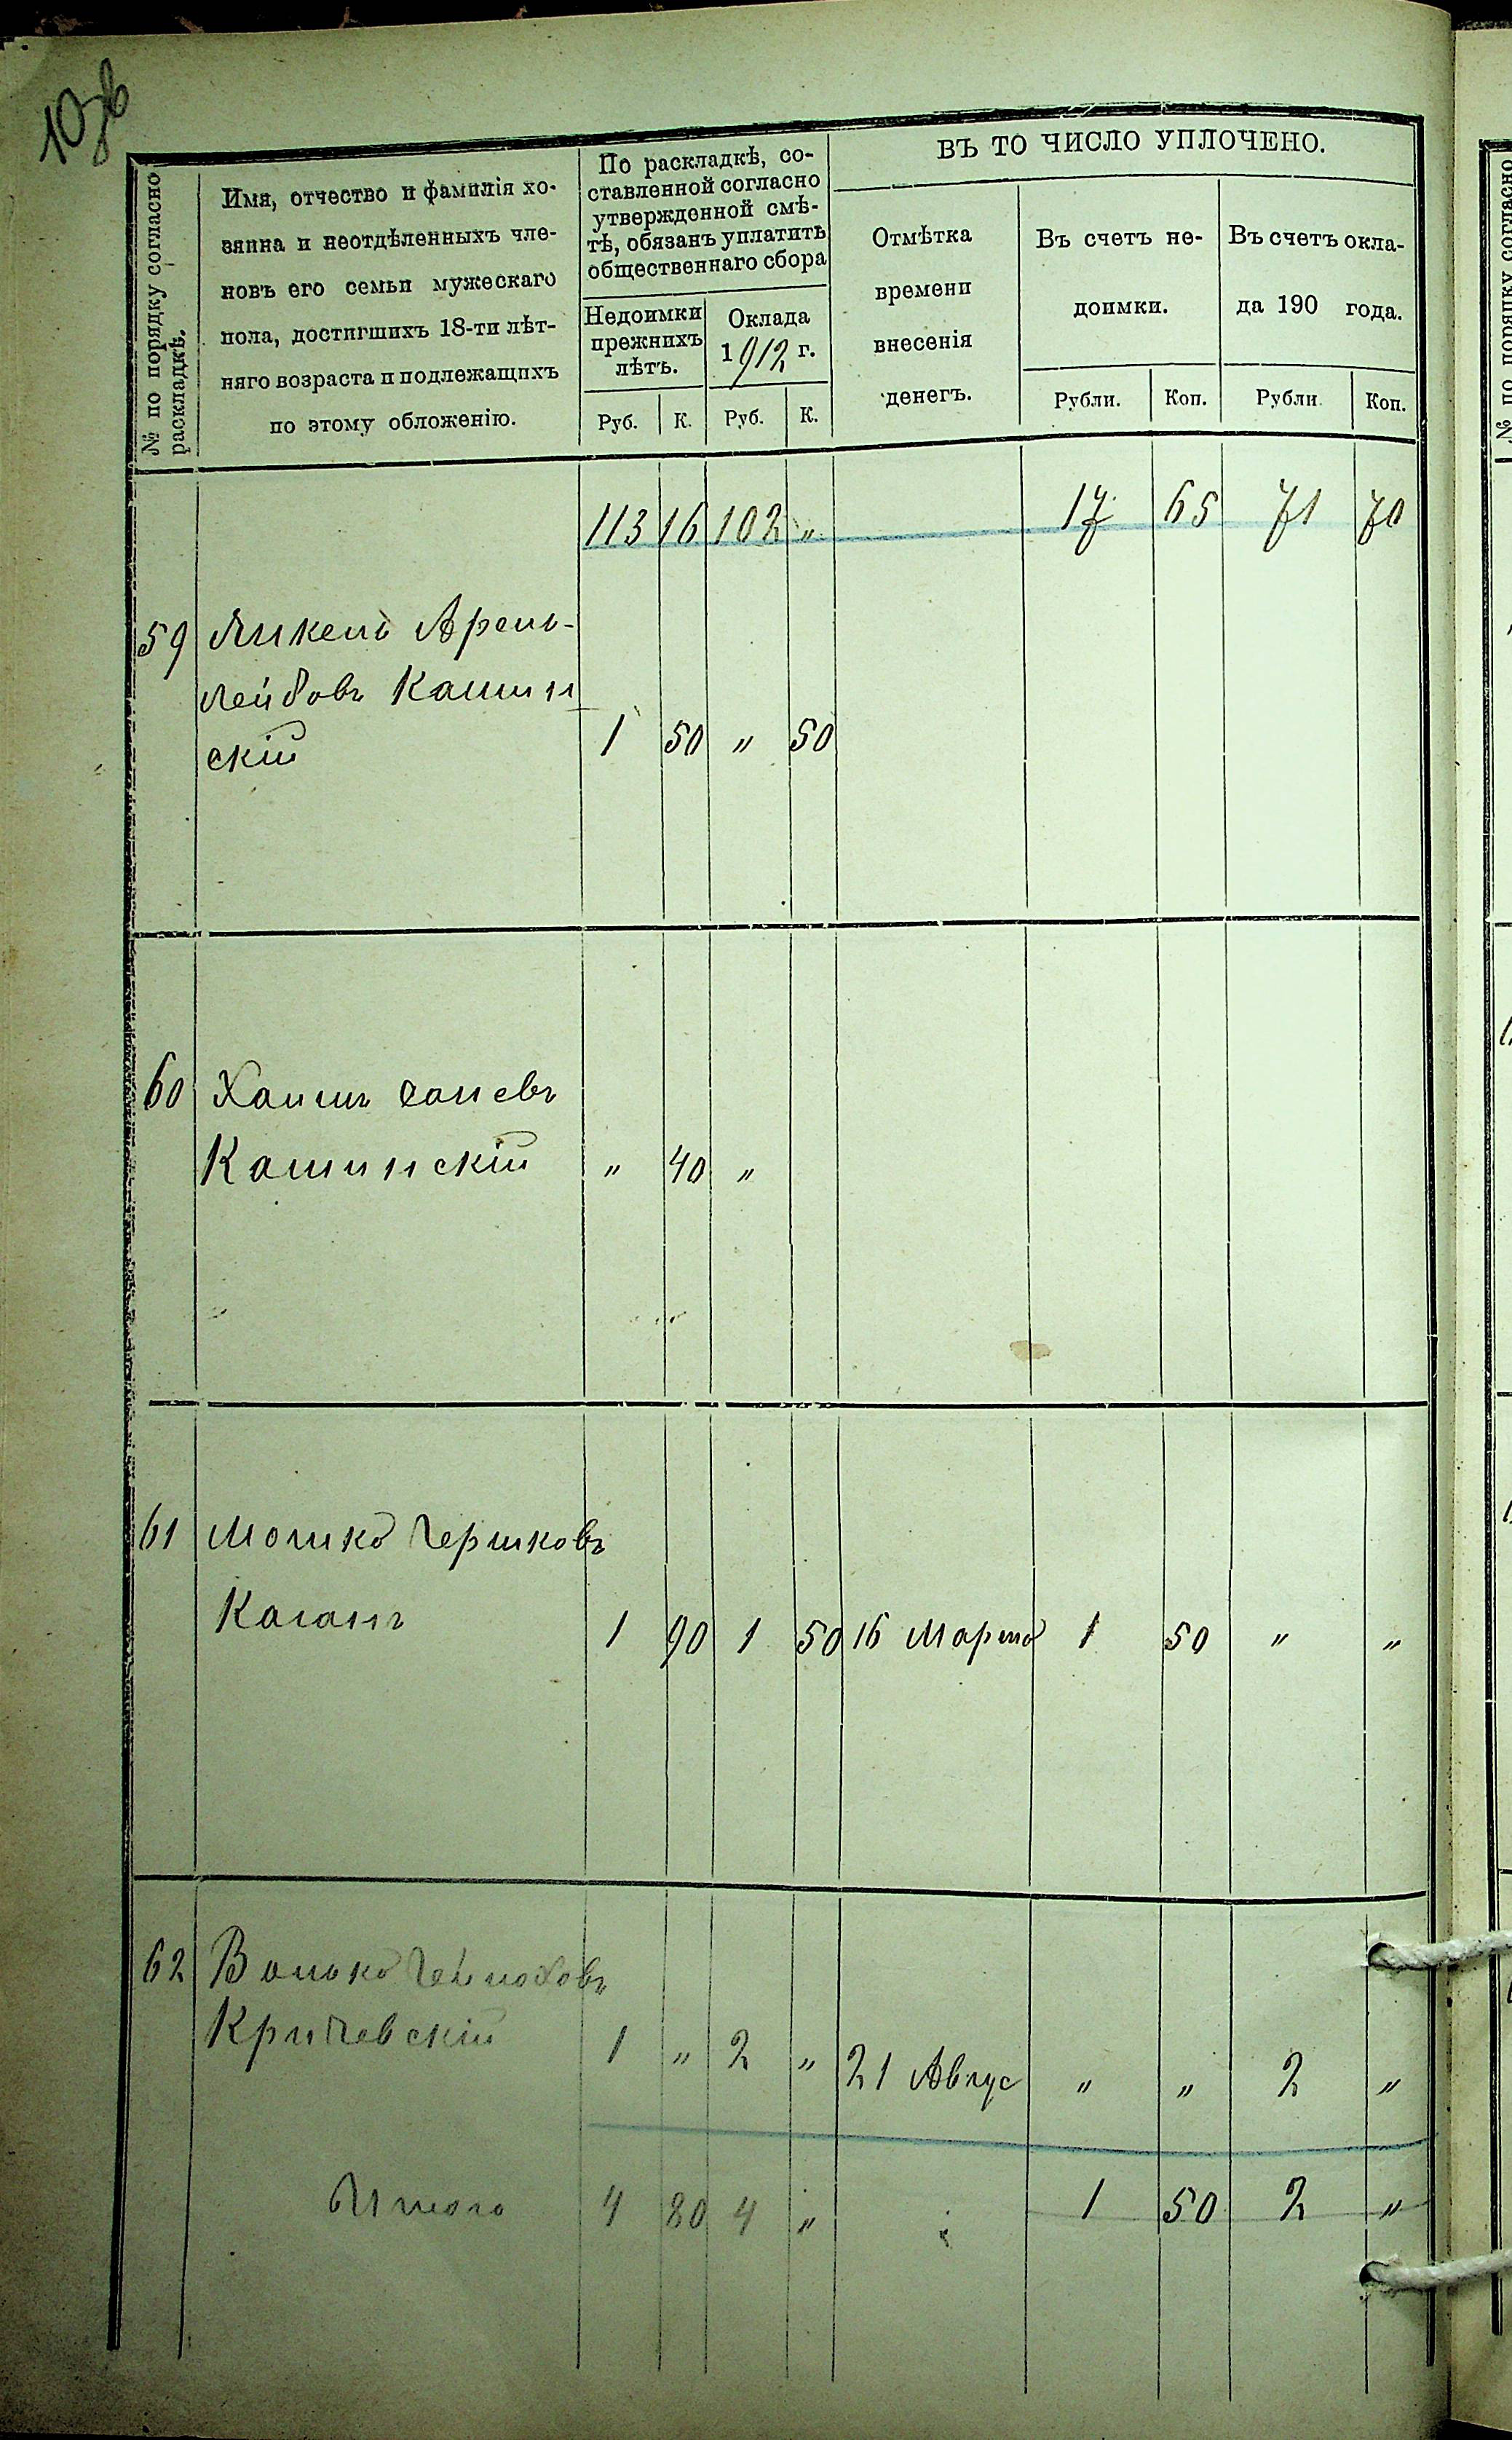 10об
№ по порядку согласно раскладкѣ.
Имя, отчество и фамилія хо-
зяина и неотдѣленныхъ чле-
новъ его семьи мужескаго
пола, достигшихъ 18-ти лѣт-
няго возраста и подлежащихъ
по этому обложенію.
По раскладкѣ, со-
ставленной согласно
утвержденной смѣ-
тѣ, обязанъ уплатить
общественнаго сбора
Недоимки
прежнихъ
лѣтъ.
Руб. К.
Оклада
1912 г.
Руб. К.
ВЪ ТО ЧИСЛО УПЛОЧЕНО.
Отмѣтка
времени
внесенія
денегъ.
Въ счетъ не-
доимки.
Рубли. Коп.
Въ счетъ окла-
да 190 года.
Рубли. Коп.
113 16 102 „ 17 65 71 70
59 Янкель Арель-
Лейбовъ Кашин
скій 1 50 „ 50
60 Хаимъ
Кашинскій „ 40 „
61 Мошко Гершковъ
Каганъ 1 90 1 50 16 Марта 1 50 „ „
62 Волько
Кричевскій 1 „ 2 „ 21 Авгус „ „ 2 „
Итого 4 80 4 „ 1 50 2 „
№ по порядку согласно